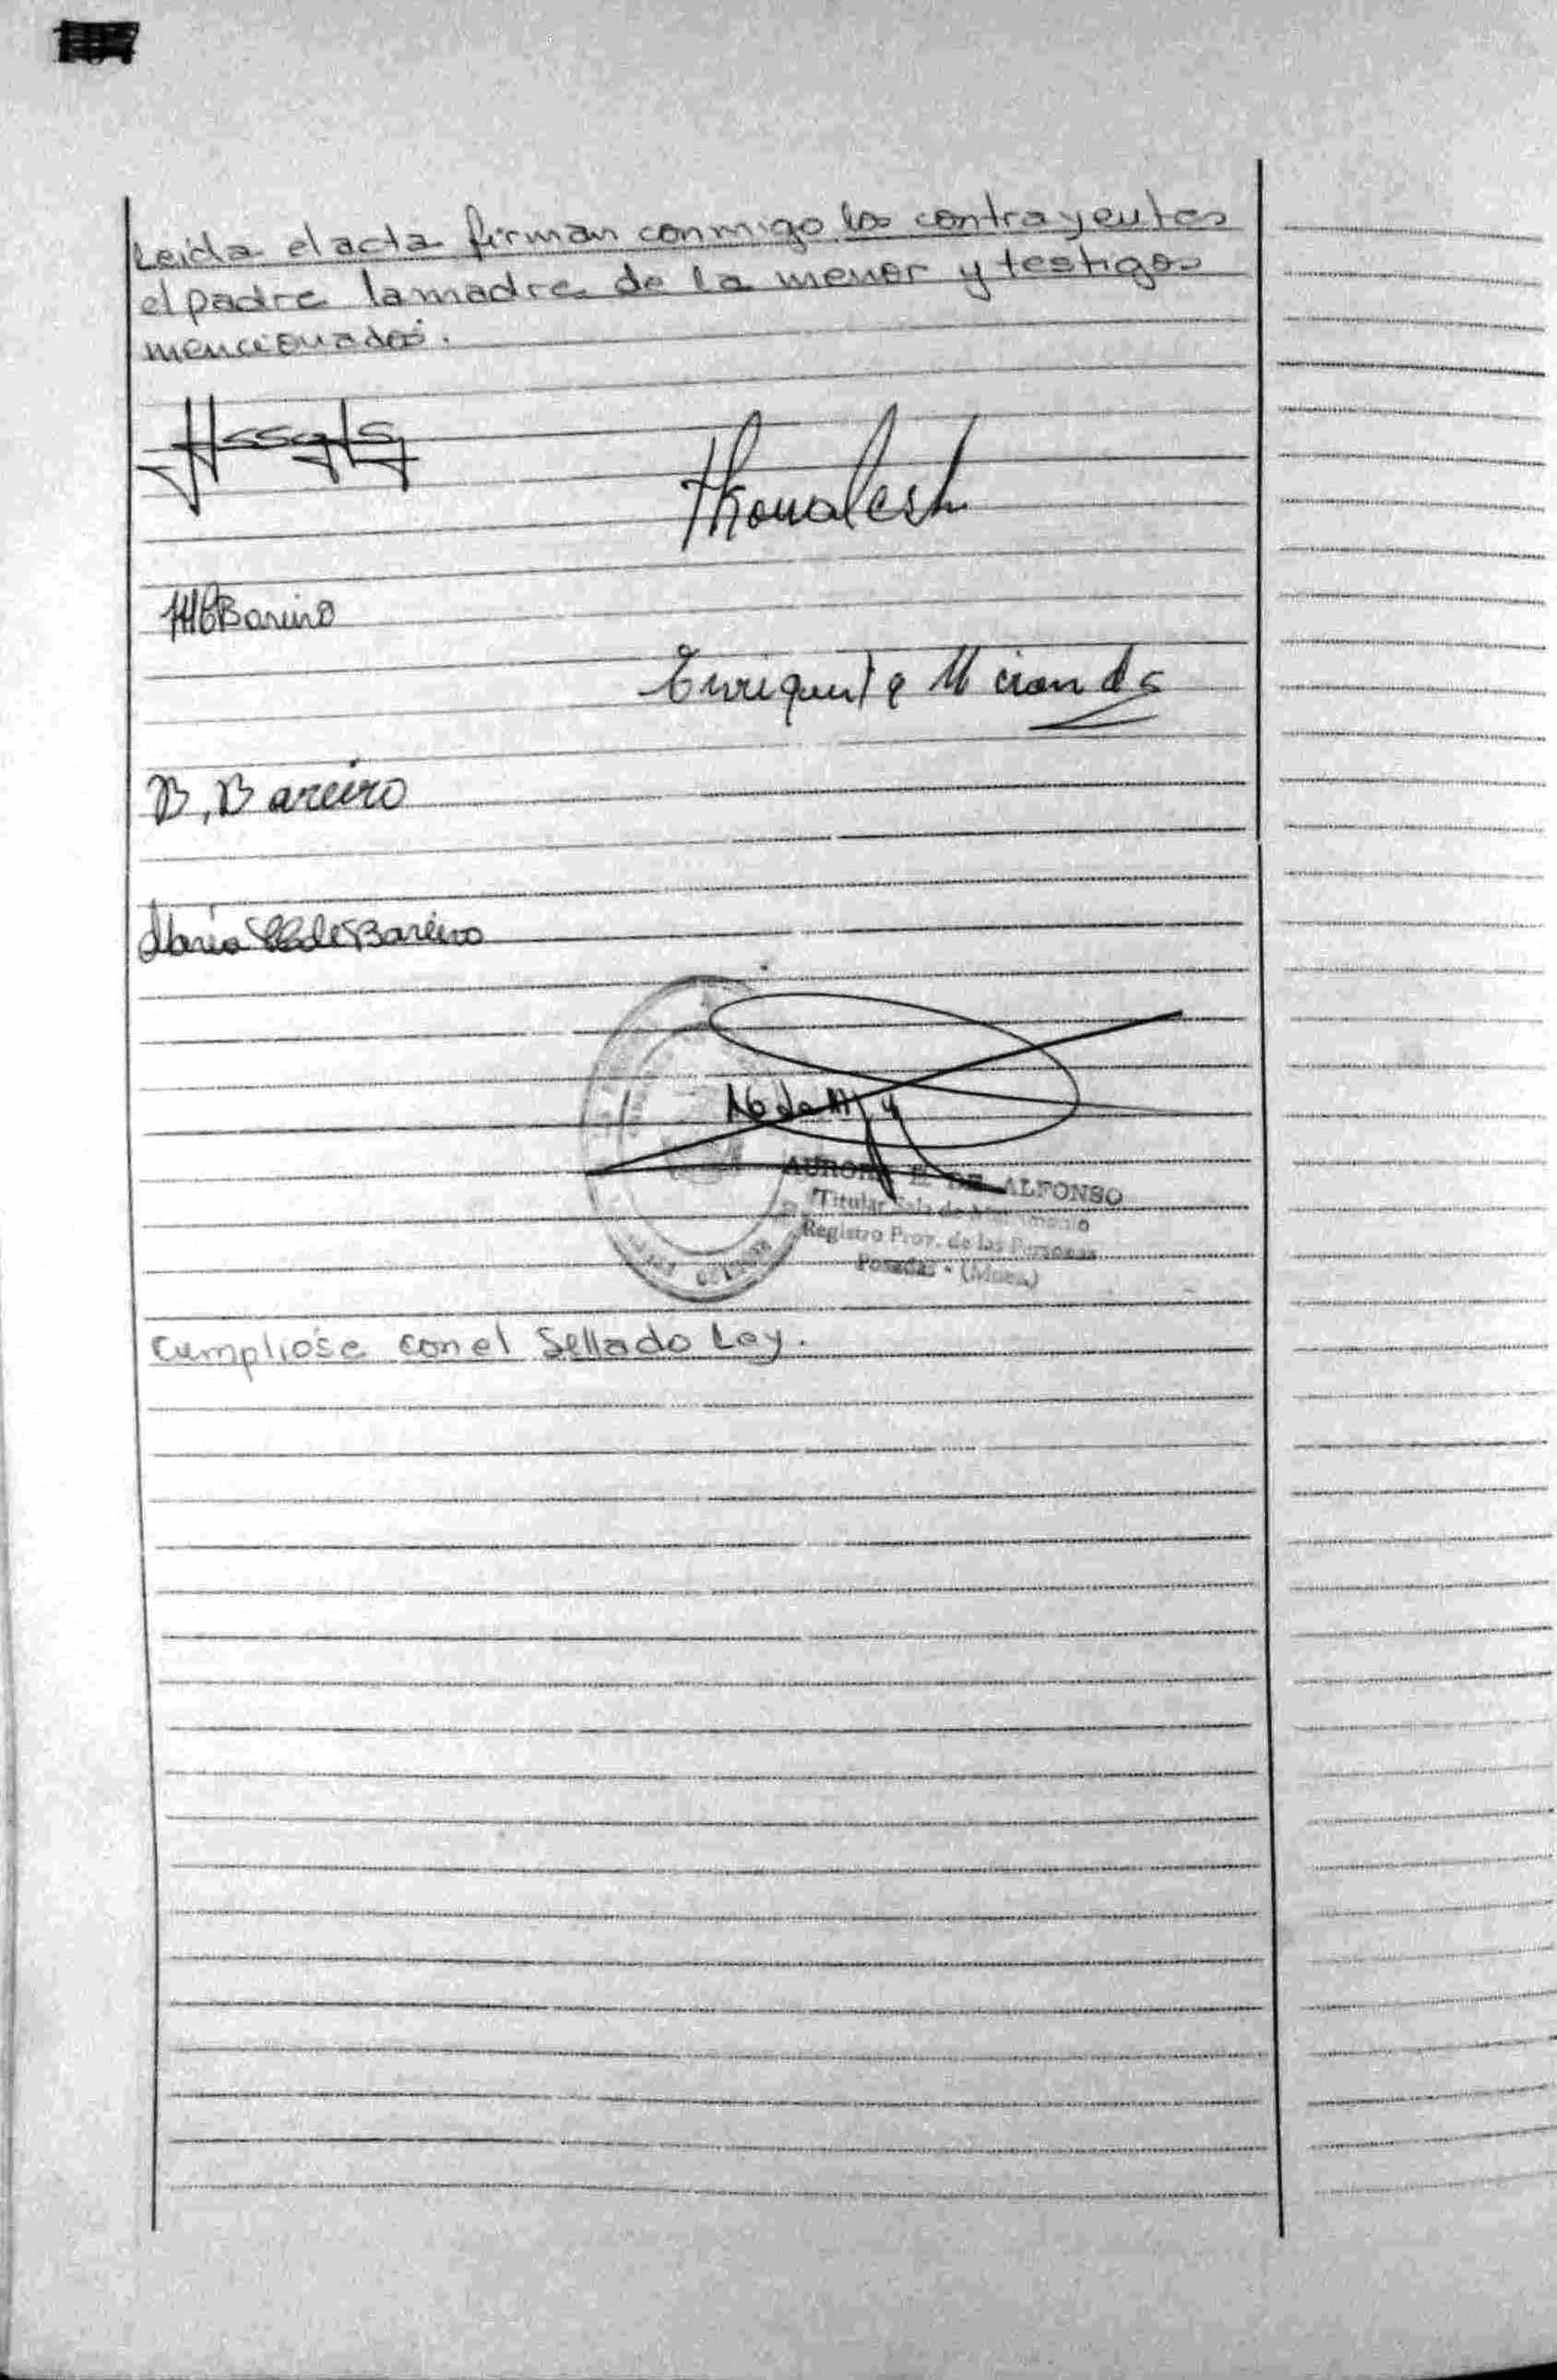 Leida el acta firman conmigo los contrayentes
el padre la madre de la menor y testigos
mencionados.
Enriqueta Miranda
B. Bareiro
Maria de Bareiro
AURORA E. DE ALFONSO
Titular Sala de Matrimonio
Registro Prov. de las Personas
Posadas - (Mnes.)
Cumpliose con el Sellado Ley.